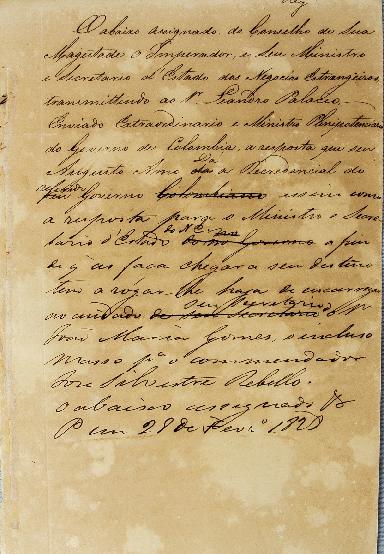 O abaixo assignado, do Conselho de Sua
Magestade o Imperador, e Seu Ministro
e Secretario d'Estado dos Negocios Estrangeiros,
transmittendo ao Sr. Leandro Palacio,
Enviado Extraordinario e Ministro Plenipotenciario
do Governo de Colombia, a resposta que seu
Augusto Amo dá a Recredencial do
Governo Colombiano assim como
a resposta para o Ministro e Secre
tario d'Estado do mo Governo a fim
de q as faça chegar a seu destino
tem a rogar-lhe haja de encarregar
no cuidado de seu Secretario o Sr
José Maria Gomes, o incluso
masso pa o commendador
Jose Silvestre Rebello.
o abaixo assignado &
P em 29 de Fevro 1828